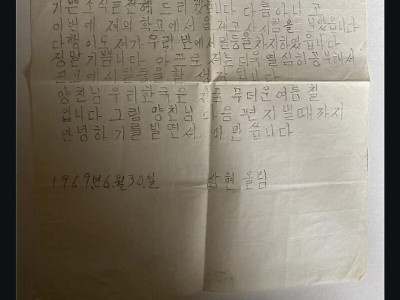 기쁜 소식을 전해 드리겠습니다 다름아니고
이번에 저의 학교에서 시험을 보았읍니다
다행이도 제가 우리 반에서 일등을 차지하였읍니다
정말 기쁩니다 앞으로 저는 더욱 열심히 공부해서
일등을 할 생각입니다
양친님 우리 한국은 무더운 여름철
입니다 그럼 양친님 다음 편지 낼때까지
안녕하기를 빌면서 이만 씁니다
1969년 6월 30일 올림